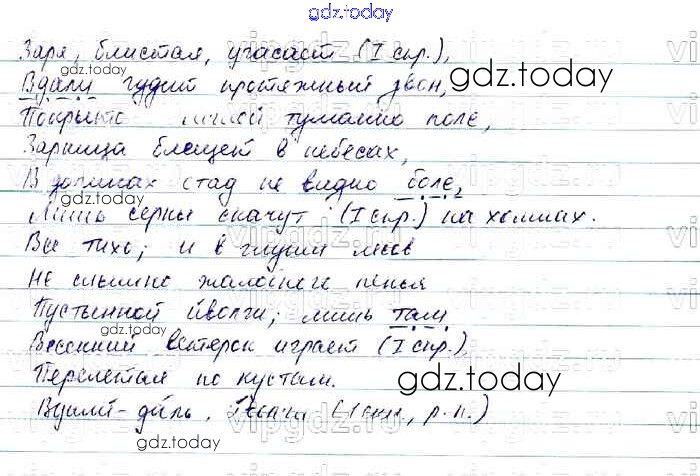 gdz.today
Заря, блистая, угасает (I спр.),
Вдали гудит протяжный звон,
gdz.today
Покрыто мглой туманно поле,
Зарница блещет в небесах,
В долинах стад не видно боле,
gdz.today
Лишь серны скачут (I спр.) на холмах.
Все тихо; и в глуши лесов
Не слышно жалобного пенья
Пустынной иволги; лишь там
gdz.today
Весенний ветерок играет (I спр.),
Перелетая по кустам.
gdz.today
gdz.today
vipgdz.ru